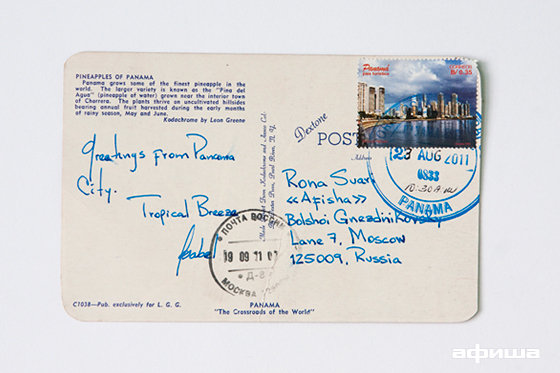 PINEAPPLES OF PANAMA
Panama grows some of the finest pineapple in the
world. The larger variety is known as the "Pina del
Agua" (pineapple of water) grown near the interior town
of Chorrera. The plants thrive on uncultivated hillsides
bearing annual fruit harvested during the early months
of rainy season, May and June.
Kodachrome by Leon Greene
Greetings from Panama
City.
Tropical Breeze
Isabel
C1038—Pub. exclusively for L. G. G.
PANAMA
"The Crossroads of the World"
Dextone
Made
Pearl River, N. Y.
POST
Address
Panama
CORREOS
B/0.35
23 AUG 2011
0833
10:30 A.M
PANAMA
Rona Suari
«Afisha»
Bolshoi Gnezdnikovsky
Lane 7, Moscow
125009, Russia
ПОЧТА РОССИИ
19 09 11 0
Д-8
МОСКВА
афиша